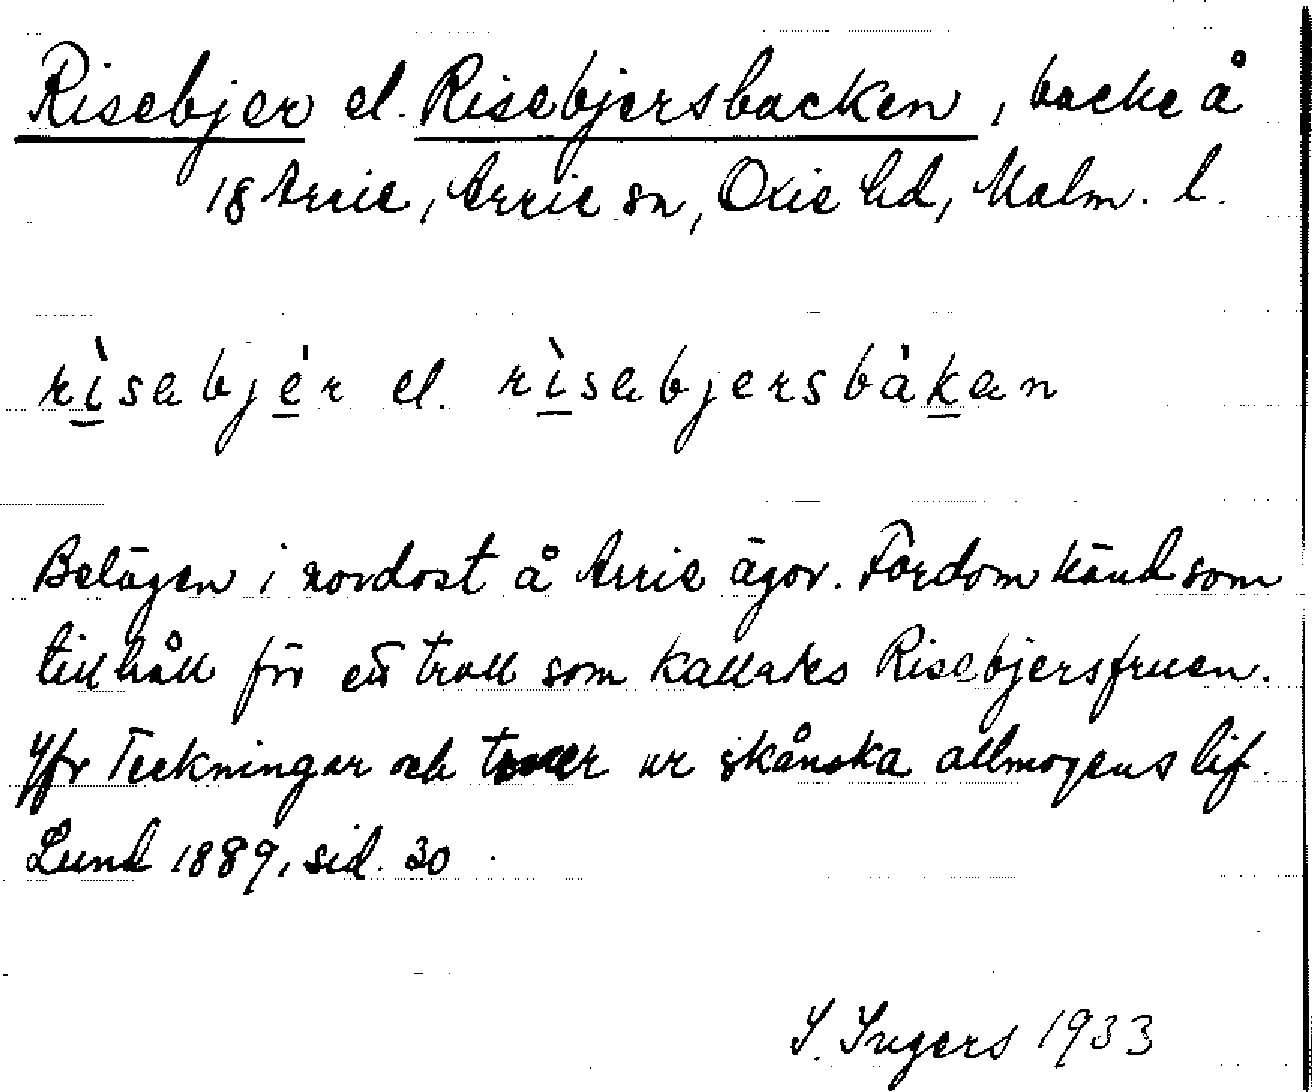 Risebjer el. Risebjersbacken, backe å
18 Arrie, Arrie sn, Oxie hd, Malm. l.
rìsebjér el. rìsebjersbákan
Belägen i nordost å Arrie ägor. Fordom känd som
tillhåll för ett troll som kallades Risebjersfruen.
Jfr Teckningar och toner ur skånska allmogens lif.
Lund 1889, sid. 30
I. Ingers 1933